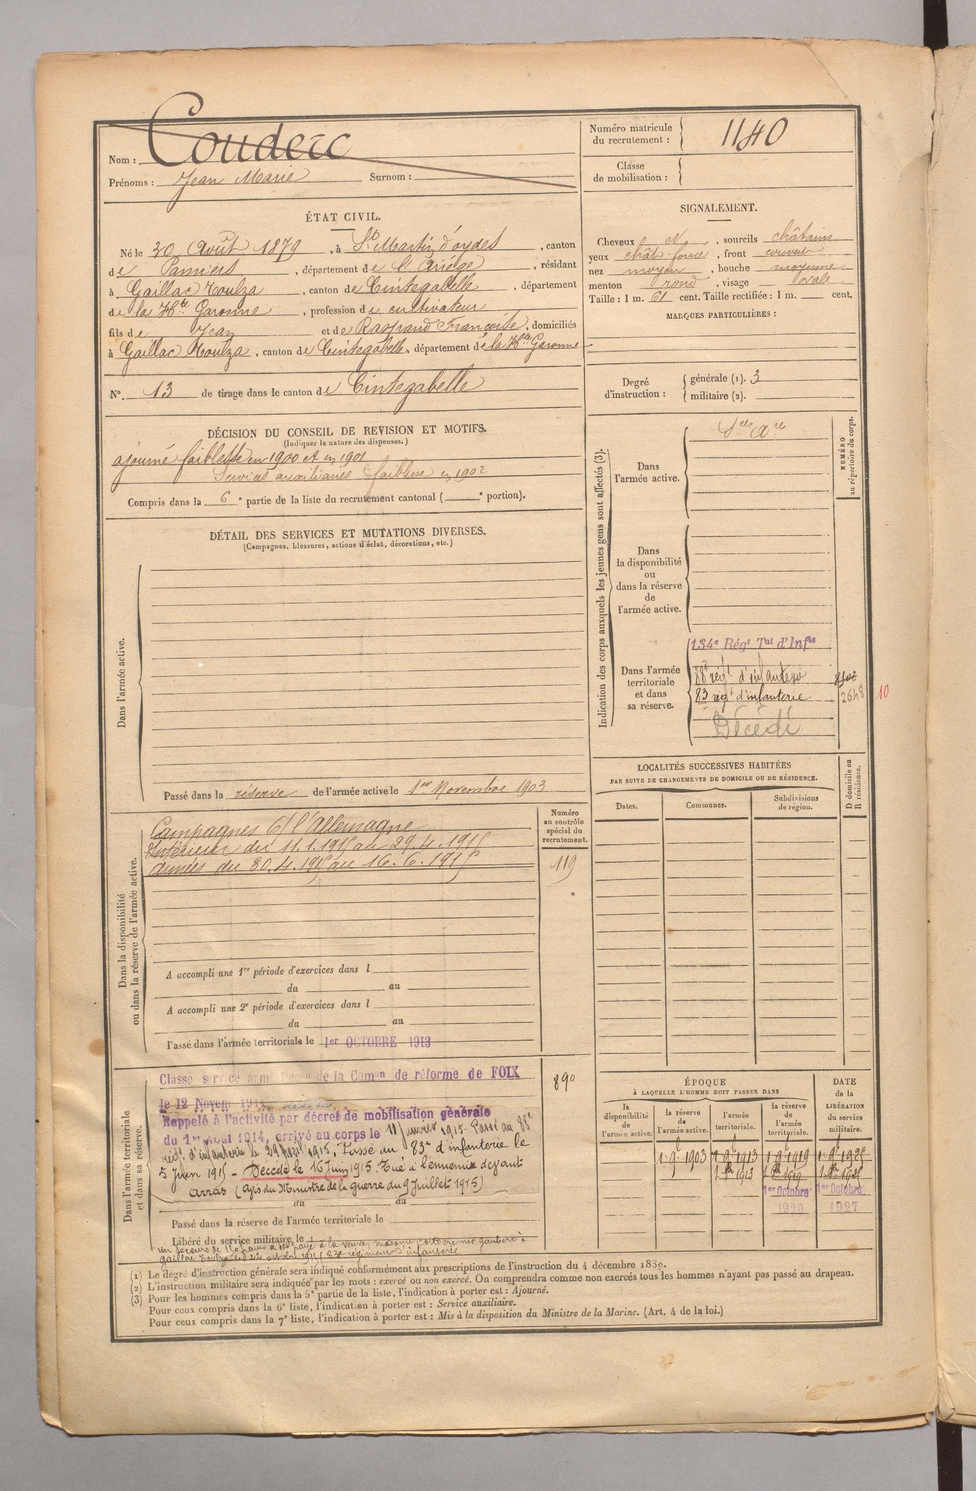 Nom : Couderc
Prénoms : Jean Marie Surnom :
Numéro matricule du recrutement : 1140
Classe de mobilisation :
ÉTAT CIVIL.
Né le 30 Août 1879, à St Martin d'oydes, canton
de Pamiers, département de l'Ariège, résidant
à Gaillac Toulza, canton de Cintegabelle, département
de la Hte Garonne, profession de cultivateur
fils de Jean et de Raspaud Françoise, domiciliés
à Gaillac Toulza, canton de Cintegabelle, département de la Hte Garonne
N° 13 de tirage dans le canton de Cintegabelle
SIGNALEMENT.
Cheveux et, sourcils châtains
yeux chât. foncé, front couvert
nez moyen, bouche moyenne
menton rond, visage ovale
Taille : 1 m. 61 cent. Taille rectifiée : 1 m. cent.
MARQUES PARTICULIÈRES :
Degré d'instruction : générale (1). 3
militaire (2).
DÉCISION DU CONSEIL DE REVISION ET MOTIFS.
(Indiquer la nature des dispenses.)
ajourné faiblesse en 1900 et en 1901
Services auxiliaires faiblesse en 1902
Compris dans la 6e partie de la liste du recrutement cantonal ( e portion).
DÉTAIL DES SERVICES ET MUTATIONS DIVERSES.
(Campagnes, blessures, actions d'éclat, décorations, etc.)
Dans l'armée active.
Passé dans la réserve de l'armée active le 1er Novembre 1903
Indication des corps auxquels les jeunes gens sont affectés (3).
NUMÉRO au répertoire du corps.
Dans l'armée active.
Dans la disponibilité ou dans la réserve de l'armée active.
Dans l'armée territoriale et dans sa réserve.
134e Régt Tal d'Infie
88e régt d'infanterie
83 régt d'infanterie
2648
10
Décédé
Dans la disponibilité ou dans la réserve de l'armée active.
Numéro au contrôle spécial du recrutement.
Campagnes C/ l'Allemagne
Intérieur du 11.1.1915 au 29.4.1915
Armées du 30.4.1915 au 16.6.1915
119
A accompli une 1re période d'exercices dans l
du au
A accompli une 2e période d'exercices dans l
du au
Passé dans l'armée territoriale le 1er OCTOBRE 1913
LOCALITÉS SUCCESSIVES HABITÉES
PAR SUITE DE CHANGEMENTS DE DOMICILE OU DE RÉSIDENCE.
D domicile ou R résidence.
Dates. Communes. Subdivisions de région.
Dans l'armée territoriale et dans sa réserve.
Classé service armé de la Comon de réforme de FOIX
le 12 Novem
890
Rappelé à l'activité par décret de mobilisation générale
du 1er Août 1914, arrivé au corps le 11 Janvier 1915. Passé au 88e
régt d'infanterie le 29 Avril 1915. Passé au 83e d'infanterie le
5 Juin 1915 – Décédé le 16 Juin 1915. Tué à l'ennemi devant
Arras (avis du Ministre de la guerre du 9 Juillet 1915)
du au
Passé dans la réserve de l'armée territoriale le
Libéré du service militaire le
Un secours de 150 francs a été payé à la veuve
Gaillac Toulza 83e régiment d'infanterie
ÉPOQUE
À LAQUELLE L'HOMME DOIT PASSER DANS
DATE de la LIBÉRATION du service militaire.
la disponibilité de l'armée active. la réserve de l'armée active. l'armée territoriale. la réserve de l'armée territoriale.
1 9bre 1903 1 9bre 1913 1 9bre 1919 1 9bre 1925
1er Octobre 1920 1er Octobre 1927
(1) Le degré d'instruction générale sera indiqué conformément aux prescriptions de l'instruction du 4 décembre 1889.
(2) L'instruction militaire sera indiquée par les mots : exercé ou non exercé. On comprendra comme non exercés tous les hommes n'ayant pas passé au drapeau.
(3) Pour les hommes compris dans la 5e partie de la liste, l'indication à porter est : Ajourné.
Pour ceux compris dans la 6e liste, l'indication à porter est : Service auxiliaire.
Pour ceux compris dans la 7e liste, l'indication à porter est : Mis à la disposition du Ministre de la Marine. (Art. 4 de la loi.)